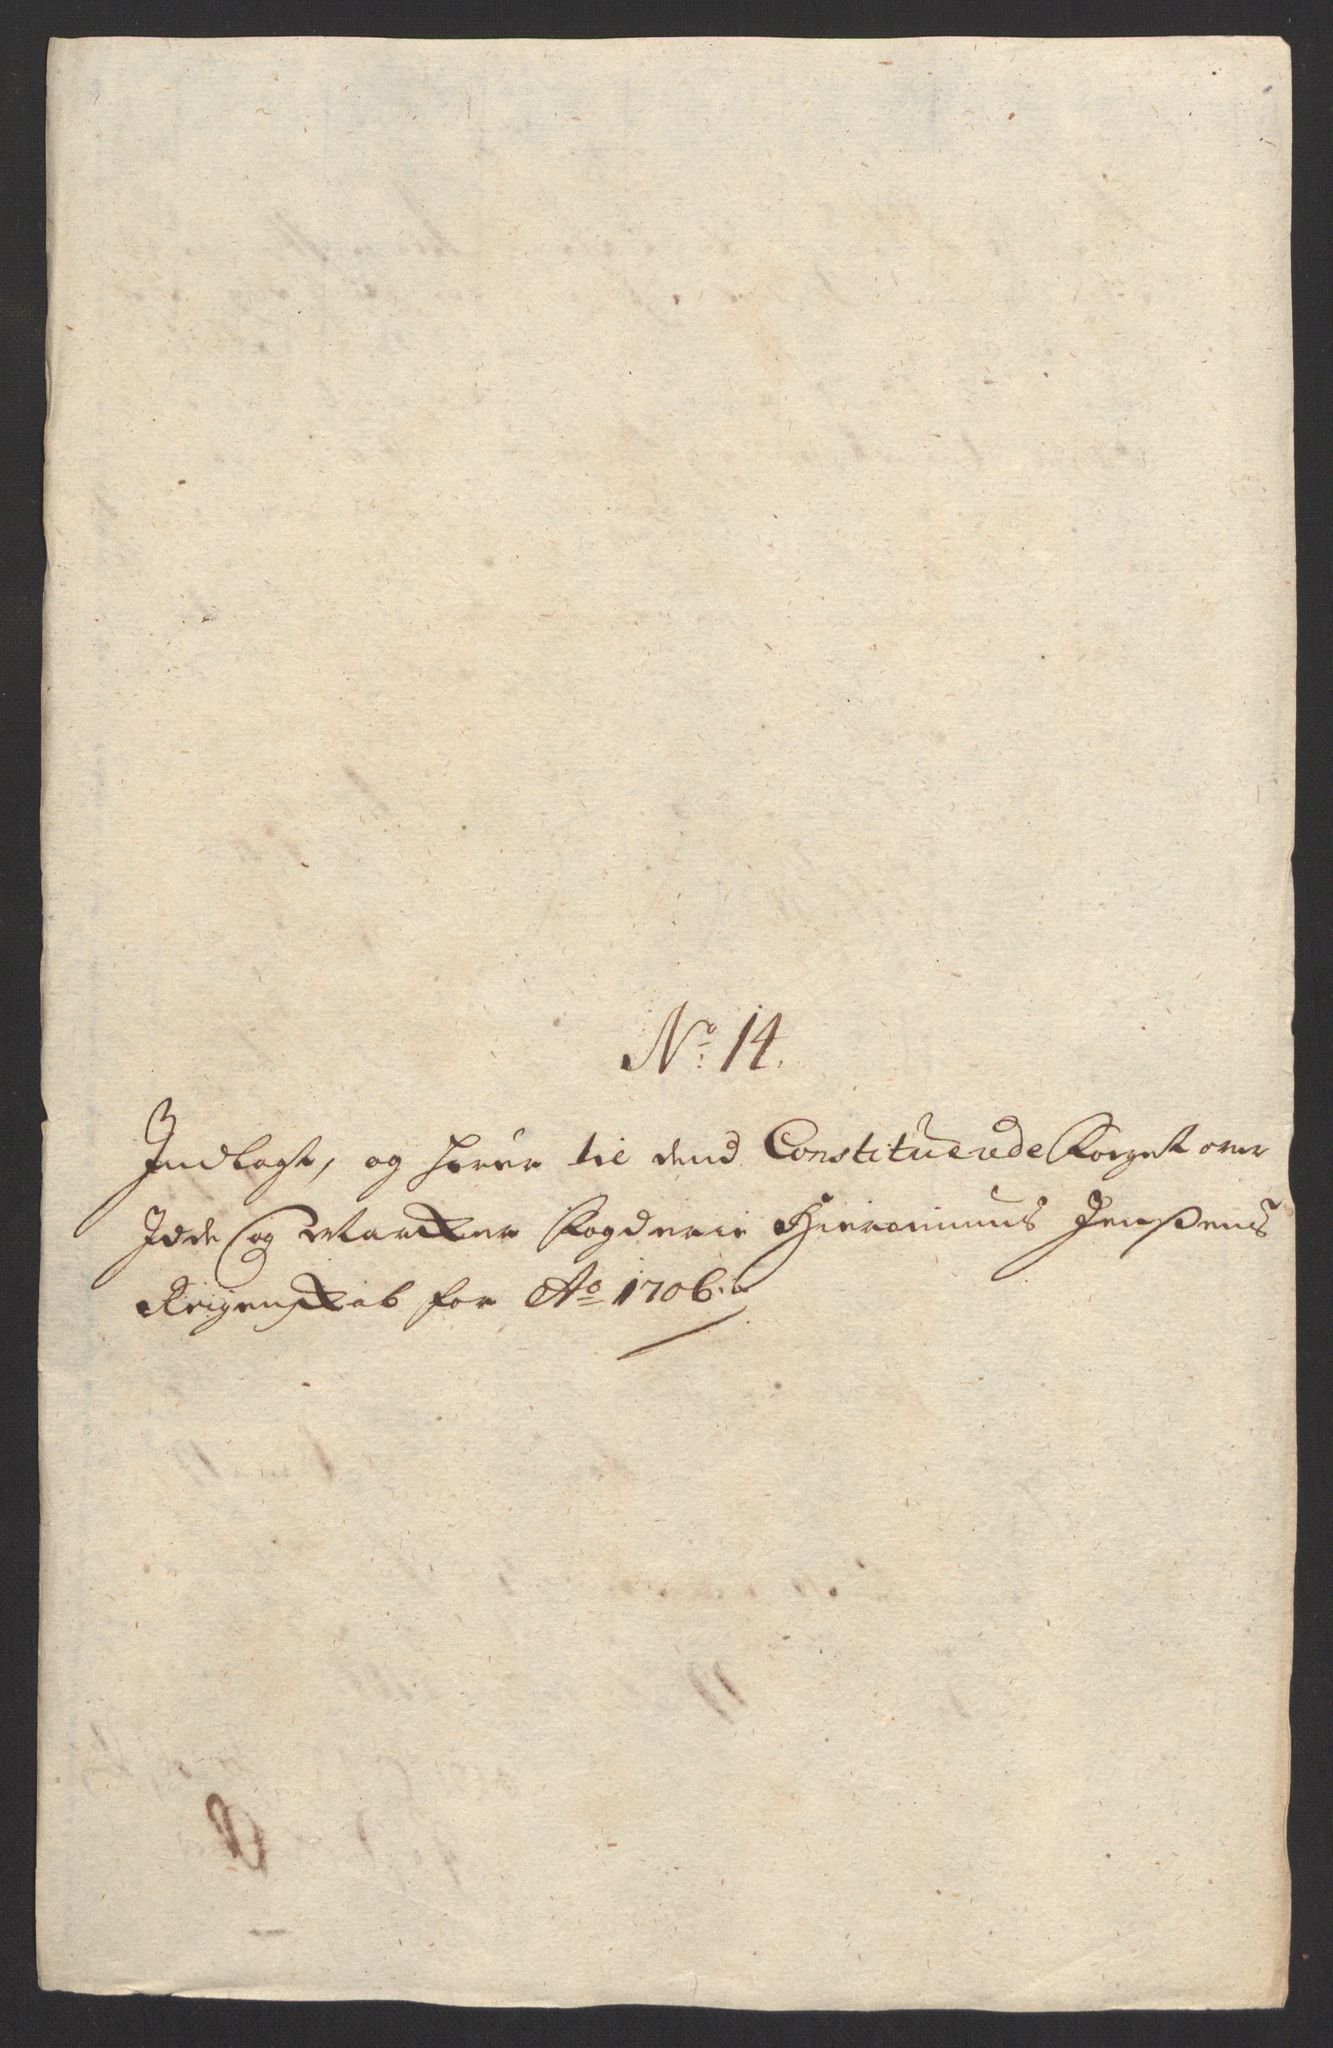 No 14.
Indlagt, og hører til dend Constituerede Foget over
Idde og Marcker Fogderie Hieronimus Jenssens
Reigenskab for Ao 1706.